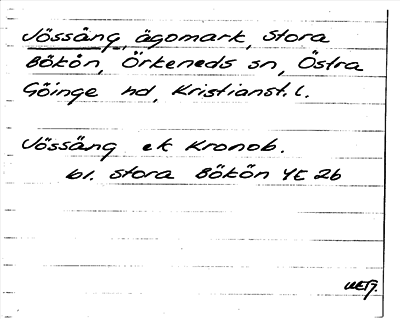 Jössäng, ägomark, Stora
Bökön, Örkeneds sn, Östra
Göinge hd, Kristianst. l.
Jössäng ek Kronob.
bl. Stora Bökön YE 2b